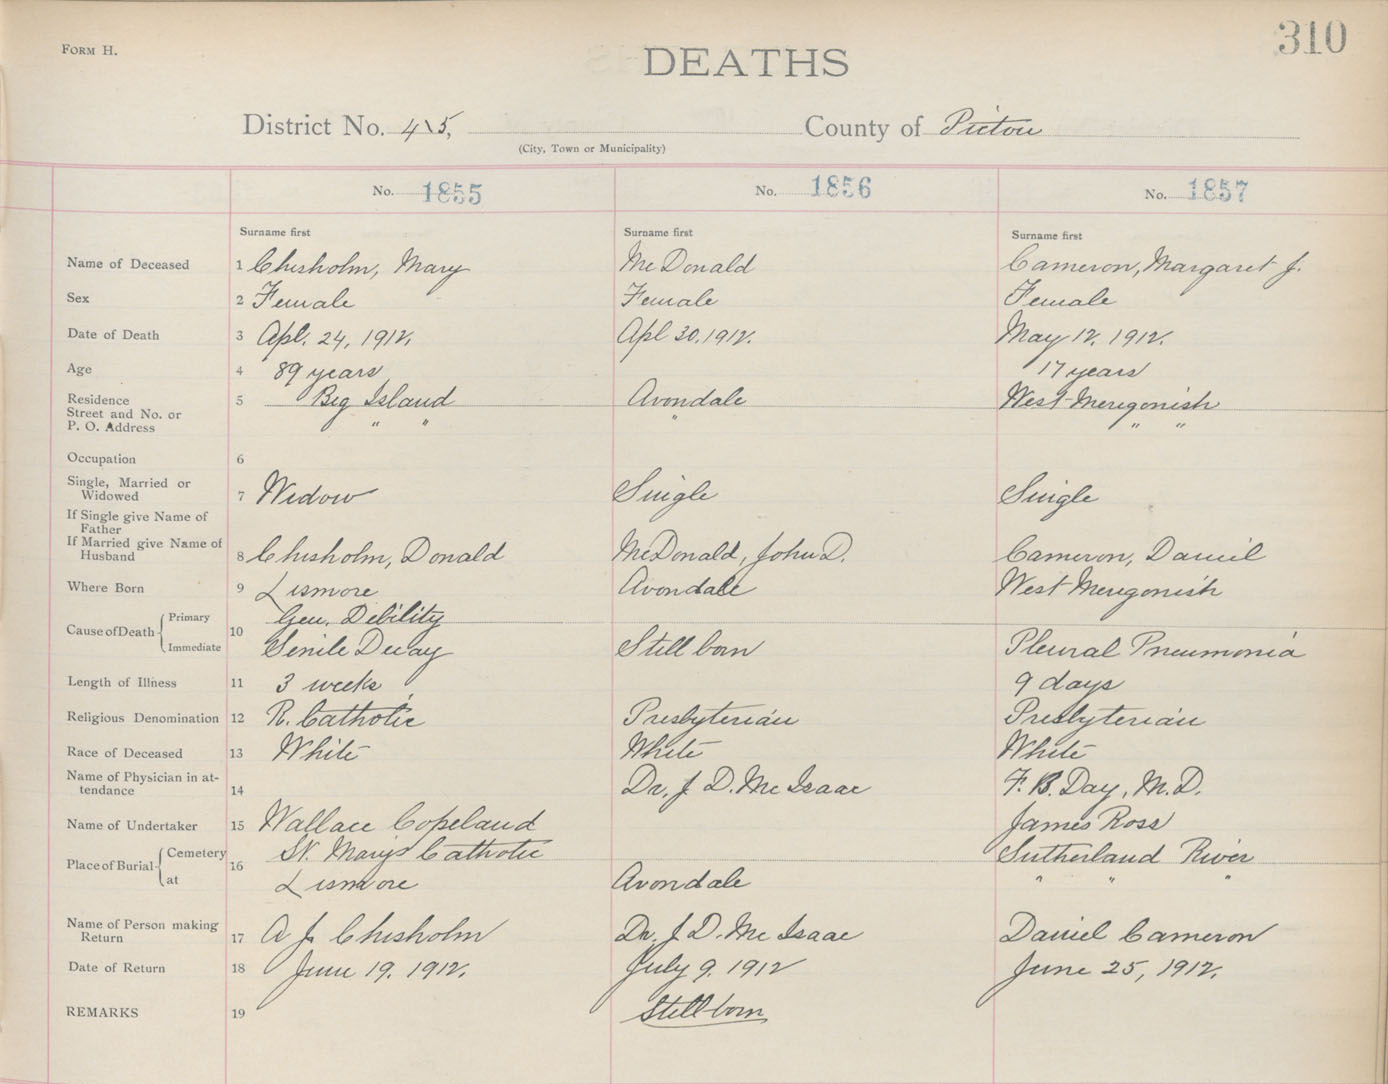 310
FORM H.
DEATHS
District No. 4\5, County of Pictou
(City, Town or Municipality)
No. 1855 No. 1856 No. 1857
Surname first Surname first Surname first
Name of Deceased 1 Chisholm, Mary McDonald Cameron, Margaret J.
Sex 2 Female Female Female
Date of Death 3 Apl. 24, 1912. Apl 30, 1912. May 12, 1912.
Age 4 89 years 17 years
Residence 5 Big Island Avondale West Merigonish
Street and No. or
P. O. Address " " " " "
Occupation 6
Single, Married or
Widowed 7 Widow Single Single
If Single give Name of
Father
If Married give Name of
Husband 8 Chisholm, Donald McDonald, John D. Cameron, Daniel
Where Born 9 Lismore Avondale West Merigonish
Primary Gen. Debility
Cause of Death 10
Immediate Senile Decay Still born Pleural Pneumonia
Length of Illness 11 3 weeks 9 days
Religious Denomination 12 R. Catholic Presbyterian Presbyterian
Race of Deceased 13 White White White
Name of Physician in at-
tendance 14 Dr. J. D. McIsaac F. B. Day, M.D.
Name of Undertaker 15 Wallace Copeland James Ross
Cemetery St. Mary's Catholic Sutherland River
Place of Burial 16
at Lismore Avondale " " "
Name of Person making
Return 17 A J. Chisholm Dr. J. D. McIsaac Daniel Cameron
Date of Return 18 June 19, 1912. July 9, 1912 June 25, 1912.
REMARKS 19 Still-born